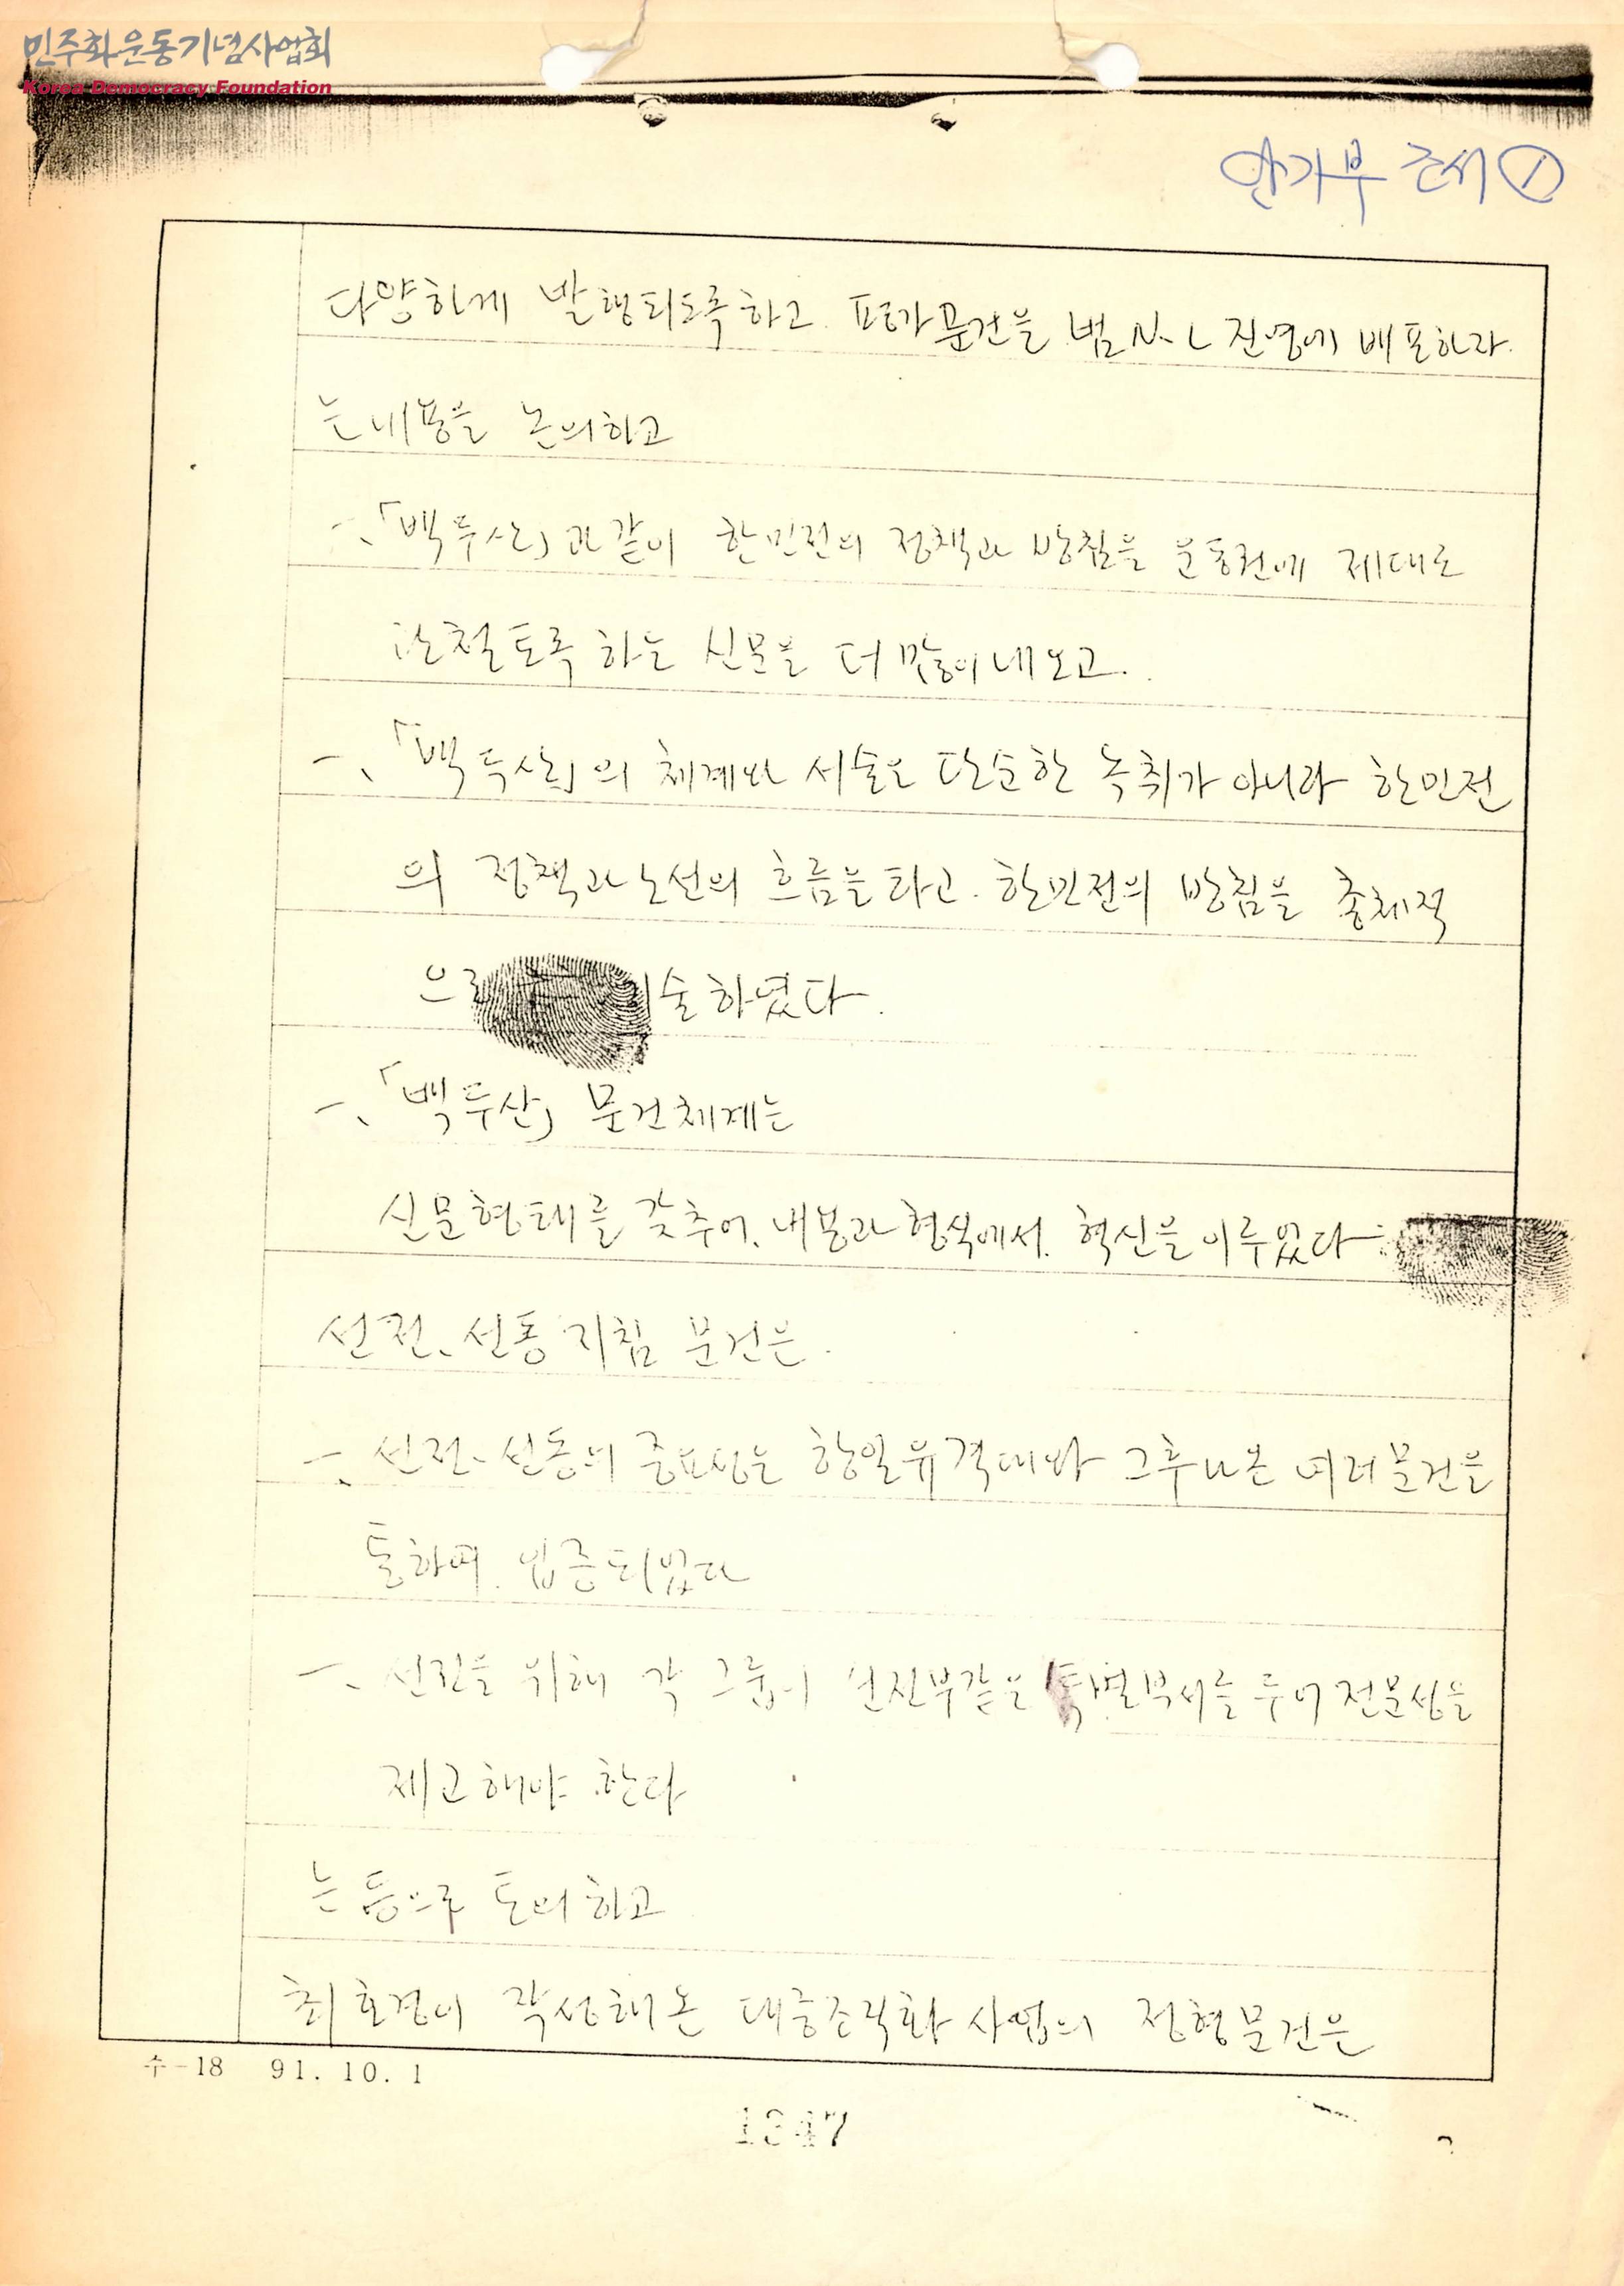 민주화운동기념사업회
Korea Democracy Foundation
안기부 조서 ①
다양하게 발행되도록 하고. 평가문건을 범 N.L 진영에 배포하라.
는 내용을 논의하고
一、「백두산」과 같이 한민전의 정책과 방침을 운동권에 제대로
관철토록 하는 신문을 더 많이 내오고.
一、「백두산」의 체계와 서술은 단순한 녹취가 아니라 한민전
의 정책과 노선의 흐름을 타고. 한민전의 방침을 총체적
으로 술하였다.
一、「백두산」 문건체계는
신문형태를 갖추어. 내용과 형식에서. 혁신을 이루었다
선전、선동 지침 문건은.
一、선전、선동의 중요성은 항일유격대와 그후 나온 여러문건을
통하여. 입증되었다
一、선전을 위해 각 그룹이 선전부같은 특별부서를 두어 전문성을
제고해야 한다
는 등으로 토의하고
최호경이 작성해온 대중조직화 사업의 정형문건은
수-18 91. 10. 1
1347